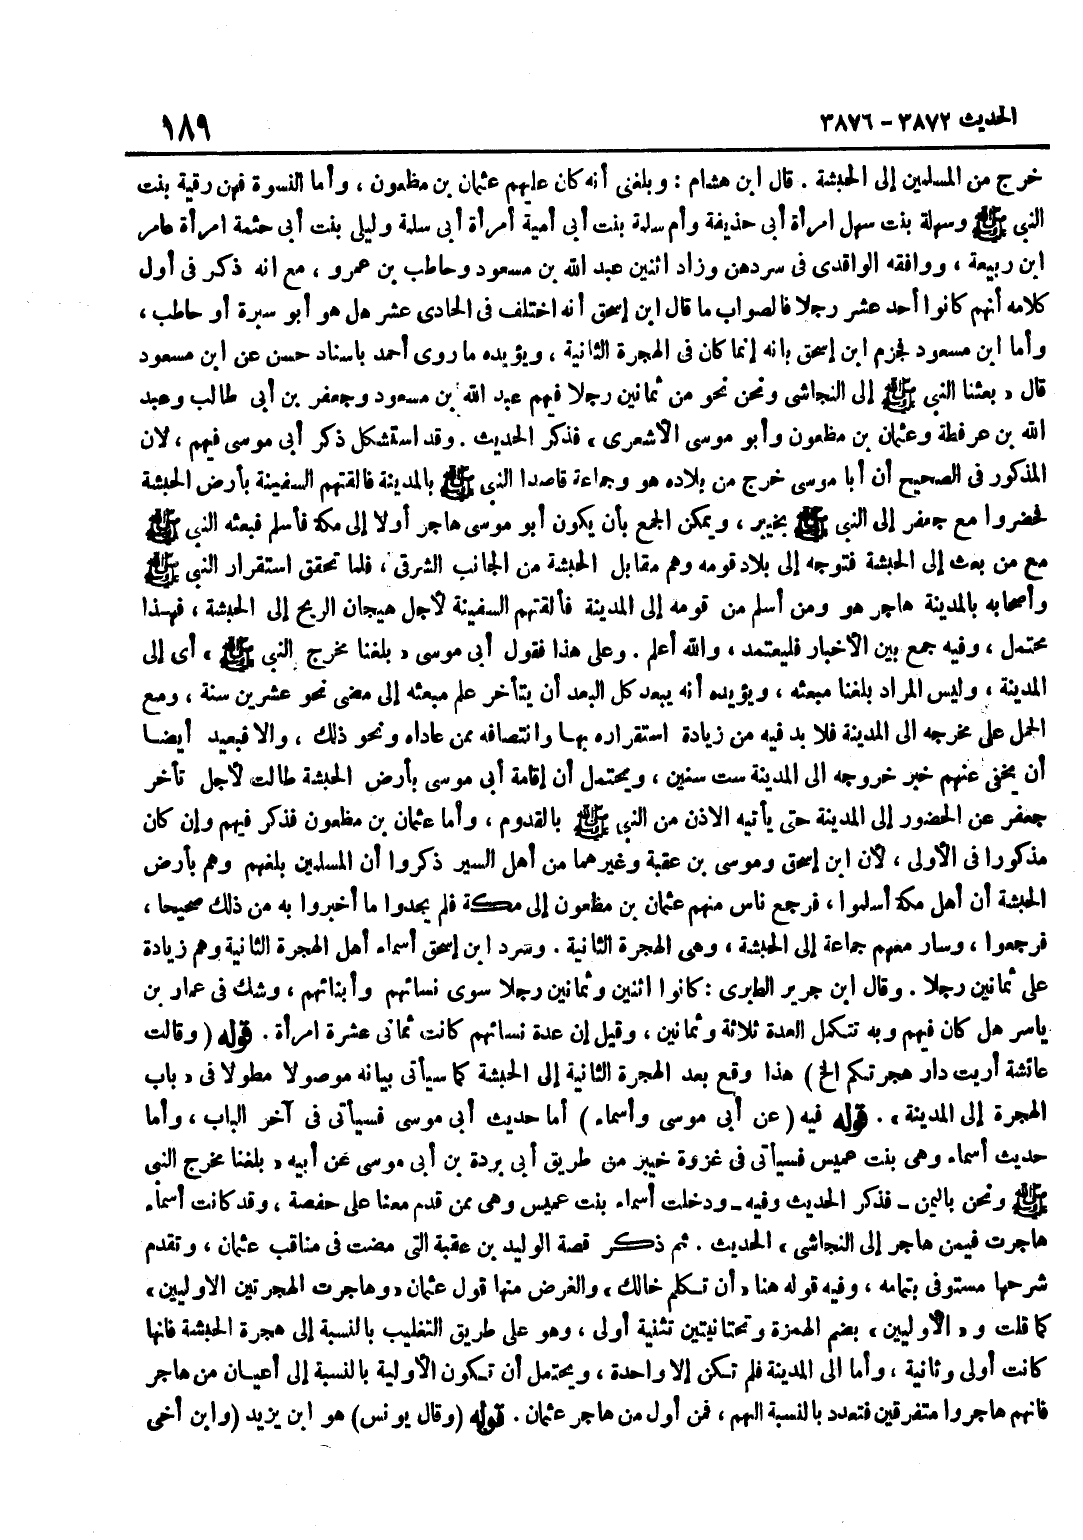 الحديث ٣٨٧٢ - ٣٨٧٦
١٨٩
خرج من المسلمين إلى الحبشة . قال ابن هشام : وبلغنى أنه كان عليهم عثمان بن مظعون ، وأما النسوة فهن رقية بنت
النبى ﷺ وسهلة بنت سهل امرأة أبى حذيفة وأم سلمة بنت أبى أمية أمرأة أبى سلمة وليلى بنت أبى حثمة امرأة عامر
ابن ربيعة ، ووافقه الواقدى فى سردهن وزاد اثنين عبد الله بن مسعود وحاطب بن عمرو ، مع انه ذكر فى أول
كلامه أنهم كانوا أحد عشر رجلا فالصواب ما قال ابن إسحق أنه اختلف فى الحادى عشر هل هو أبو سبرة أو حاطب ،
وأما ابن مسعود فجزم ابن إسحق بانه إنما كان فى الهجرة الثانية ، ويؤيده ما روى أحمد باسناد حسن عن ابن مسعود
قال « بعثنا النبى ﷺ إلى النجاشى ونحن نحو من ثمانين رجلا فيهم عبد الله بن مسعود وجعفر بن أبى طالب وعبد
الله بن عرفطة وعثمان بن مظعون وأبو موسى الأشعرى » فذكر الحديث . وقد استشكل ذكر أبى موسى فيهم ، لان
المذكور فى الصحيح أن أبا موسى خرج من بلاده هو وجماعة قاصدا النبى ﷺ بالمدينة فالقتهم السفينة بأرض الحبشة
فحضروا مع جعفر إلى النبى ﷺ بخيبر ، ويمكن الجمع بأن يكون أبو موسى هاجر أولا إلى مكة فأسلم فبعثه النبى ﷺ
مع من بعث إلى الحبشة فتوجه إلى بلاد قومه وهم مقابل الحبشة من الجانب الشرقى ، فلما تحقق استقرار النبى ﷺ
وأصحابه بالمدينة هاجر هو ومن أسلم من قومه إلى المدينة فألقتهم السفينة لأجل هيجان الريح إلى الحبشة ، فهـذا
محتمل ، وفيه جمع بين الأخبار فليعتمد ، والله أعلم . وعلى هذا فقول أبى موسى « بلغنا مخرج النبى ﷺ » أى إلى
المدينة ، وليس المراد بلغنا مبعثه ، ويؤيده أنه يبعد كل البعد أن يتأخر علم مبعثه إلى مضى نحو عشرين سنة ، ومع
الحمل على مخرجه الى المدينة فلا بد فيه من زيادة استقراره بهـا وانتصافه ممن عاداه ونحو ذلك ، والا فبعيد أيضـا
أن يخفى عنهم خبر خروجه الى المدينة ست سنين ، ويحتمل أن إقامة أبى موسى بأرض الحبشة طالت لأجل تأخر
جعفر عن الحضور إلى المدينة حتى يأتيه الاذن من النبى ﷺ بالقدوم ، وأما عثمان بن مظعون فذكر فيهم وإن كان
مذكورا فى الأولى ، لأن ابن إسحق وموسى بن عقبة وغيرهما من أهل السير ذكروا أن المسلمين بلغهم وهم بأرض
الحبشة أن أهل مكة أسلموا ، فرجع ناس منهم عثمان بن مظعون إلى مكة فلم يجدوا ما أخبروا به من ذلك صحيحا ،
فرجعوا ، وسار معهم جماعة إلى الحبشة ، وهى الهجرة الثانية . وسرد ابن إسحق أسماء أهل الهجرة الثانية وهم زيادة
على ثمانين رجلا . وقال ابن جرير الطبرى : كانوا اثنين وثمانين رجلا سوى نسائهم وأبنائهم ، وشك فى عمار بن
ياسر هل كان فيهم وبه تتكمل العدة ثلاثة وثمانين ، وقيل إن عدة نسائهم كانت ثمانى عشرة امرأة . قوله ( وقالت
عائشة أريت دار هجرتكم الخ ) هذا وقع بعد الهجرة الثانية إلى الحبشة كما سيأتى بيانه موصولا مطولا فى « باب
الهجرة إلى المدينة » . قوله فيه ( عن أبى موسى وأسماء ) أما حديث أبى موسى فسيأتى فى آخر الباب ، وأما
حديث أسماء وهى بنت عميس فسيأتى فى غزوة خيبر من طريق أبى بردة بن أبى موسى عن أبيه « بلغنا مخرج النبى
ﷺ ونحن باليمن - فذكر الحديث وفيه - ودخلت أسماء بنت عميس وهى ممن قدم معنا على حفصة ، وقد كانت أسماء
هاجرت فيمن هاجر إلى النجاشى » الحديث . ثم ذكر قصة الوليد بن عقبة التى مضت فى مناقب عثمان ، وتقدم
شرحها مستوفى بتمامه ، وفيه قوله هنا « أن تكلم خالك » والغرض منها قول عثمان « وهاجرت الهجرتين الاوليين »
كما قلت و « الأوليين » بضم الهمزة وتحتانيتين تثنية أولى ، وهو على طريق التغليب بالنسبة إلى هجرة الحبشة فانها
كانت أولى وثانية ، وأما الى المدينة فلم تكن إلا واحدة ، ويحتمل أن تكون الأولية بالنسبة إلى أعيـان من هاجر
فانهم هاجروا متفرقين فتعدد بالنسبة اليهم ، فمن أول من هاجر عثمان . قوله (وقال يونس) هو ابن يزيد (وابن أخى